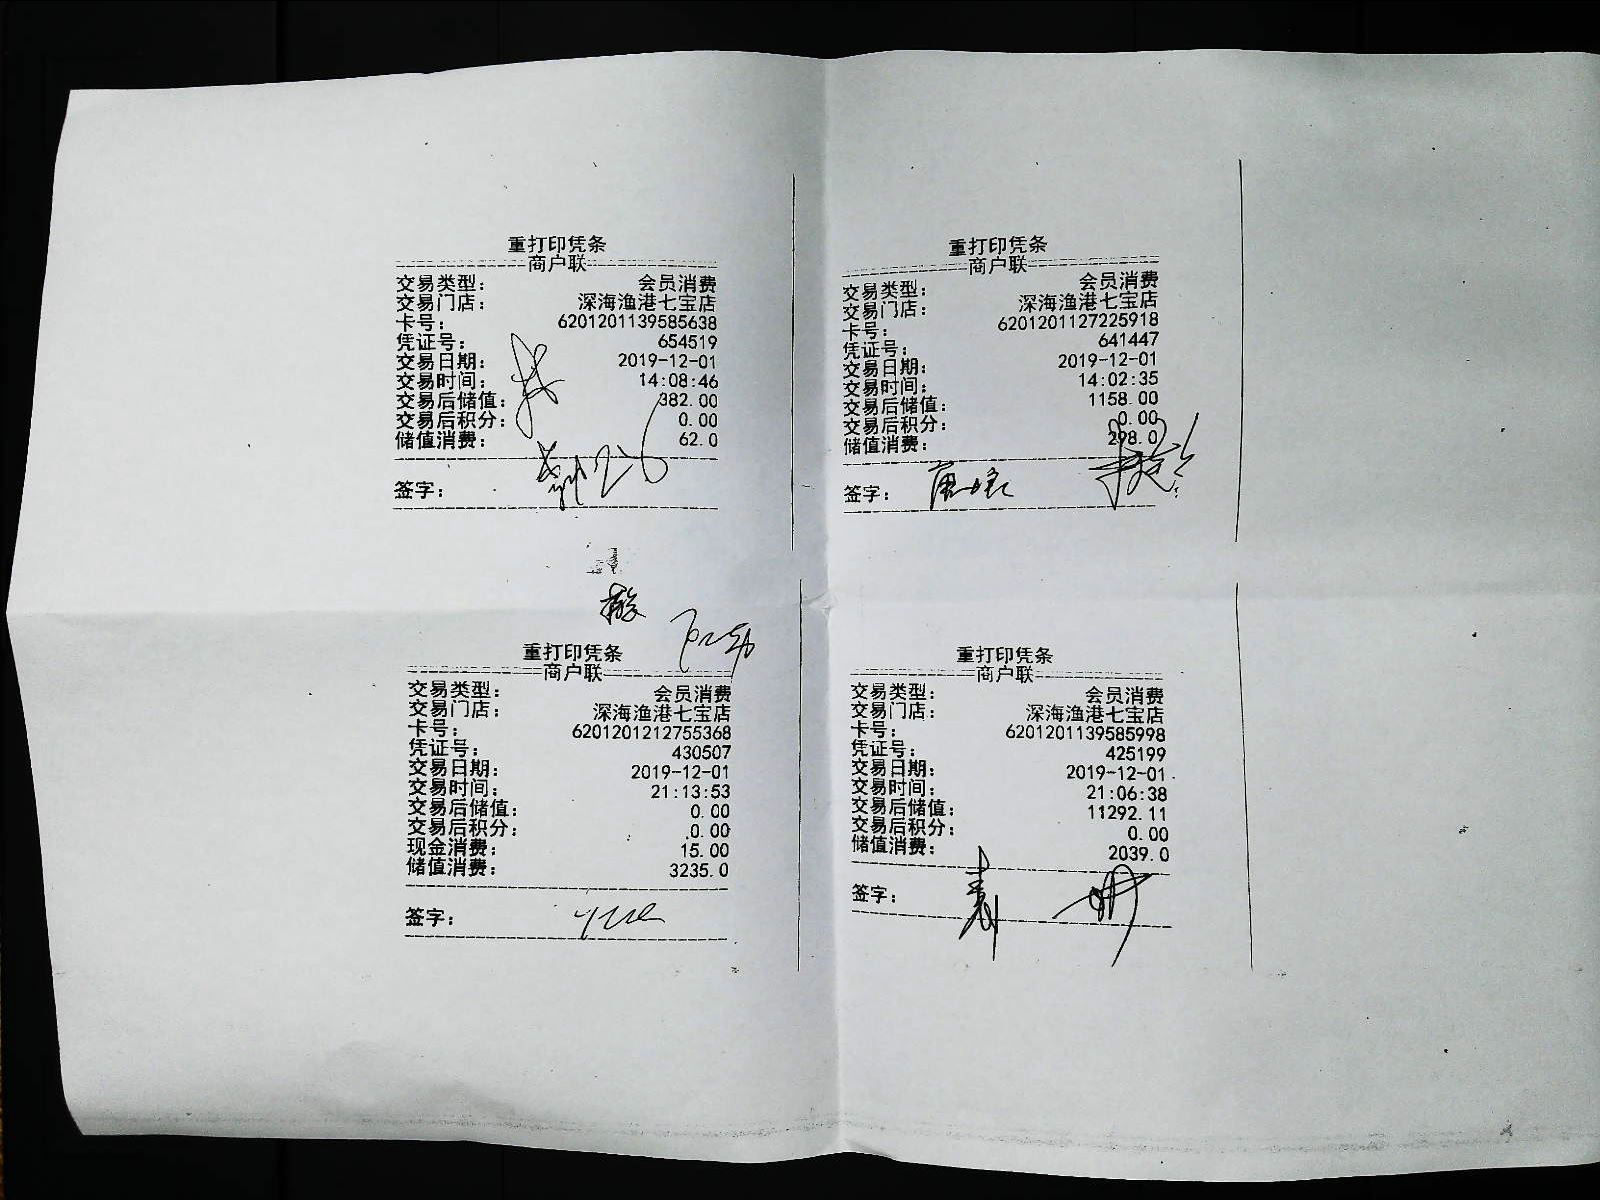 重打印凭条
商户联
交易类型： 会员消费
交易门店： 深海渔港七宝店
卡号： 6201201139585638
凭证号： 654519
交易日期： 2019-12-01
交易时间： 14:08:46
交易后储值： 382.00
交易后积分： 0.00
储值消费： 62.0
签字：
重打印凭条
商户联
交易类型： 会员消费
交易门店： 深海渔港七宝店
卡号： 6201201127225918
凭证号： 641447
交易日期： 2019-12-01
交易时间： 14:02:35
交易后储值： 1158.00
交易后积分： 0.00
储值消费： 298.0
签字：
重打印凭条
商户联
交易类型： 会员消费
交易门店： 深海渔港七宝店
卡号： 6201201212755368
凭证号： 430507
交易日期： 2019-12-01
交易时间： 21:13:53
交易后储值： 0.00
交易后积分： 0.00
现金消费： 15.00
储值消费： 3235.0
签字：
重打印凭条
商户联
交易类型： 会员消费
交易门店： 深海渔港七宝店
卡号： 6201201139585998
凭证号： 425199
交易日期： 2019-12-01
交易时间： 21:06:38
交易后储值： 11292.11
交易后积分： 0.00
储值消费： 2039.0
签字：